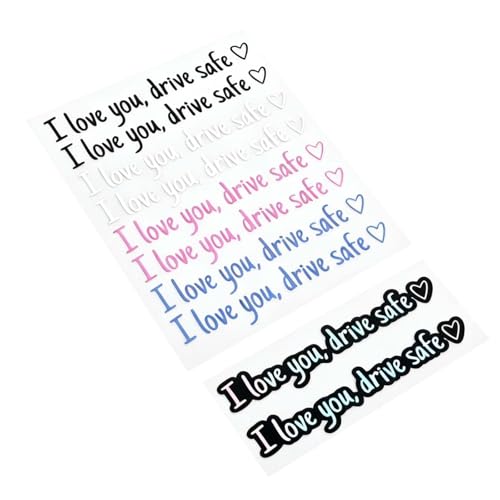 I love you, drive safe♡
I love you, drive safe♡
I love you, drive safe♡
I love you, drive safe♡
I love you, drive safe♡
I love you, drive safe♡
I love you, drive safe♡
I love you, drive safe♡
I love you, drive safe♡
I love you, drive safe♡